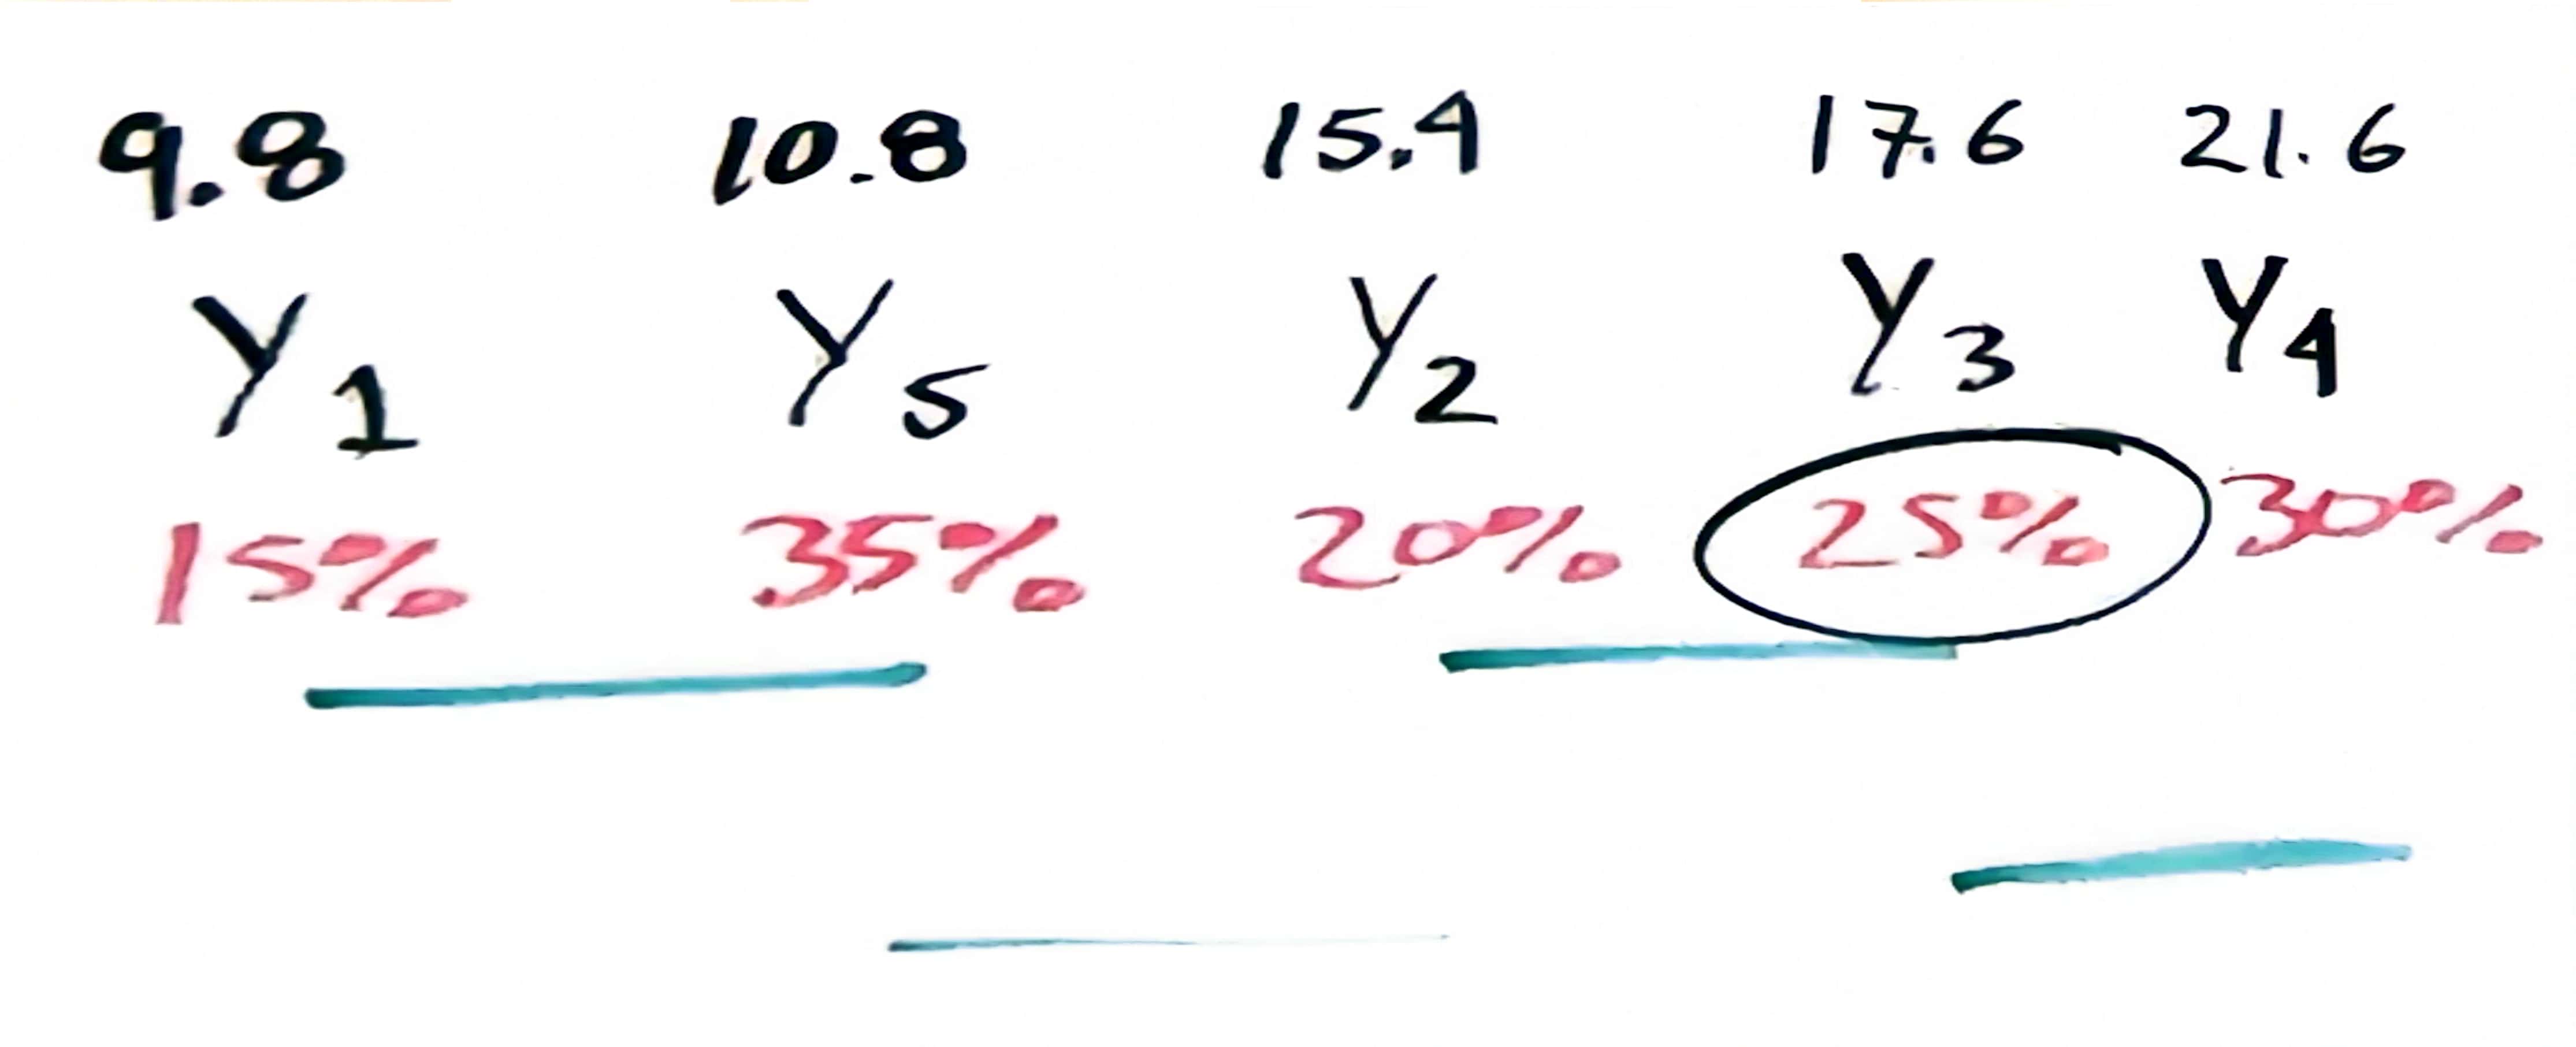 9.8 10.8 15.4 17.6 21.6
Y1 Y5 Y2 Y3 Y4
15% 35% 20% 25% 30%